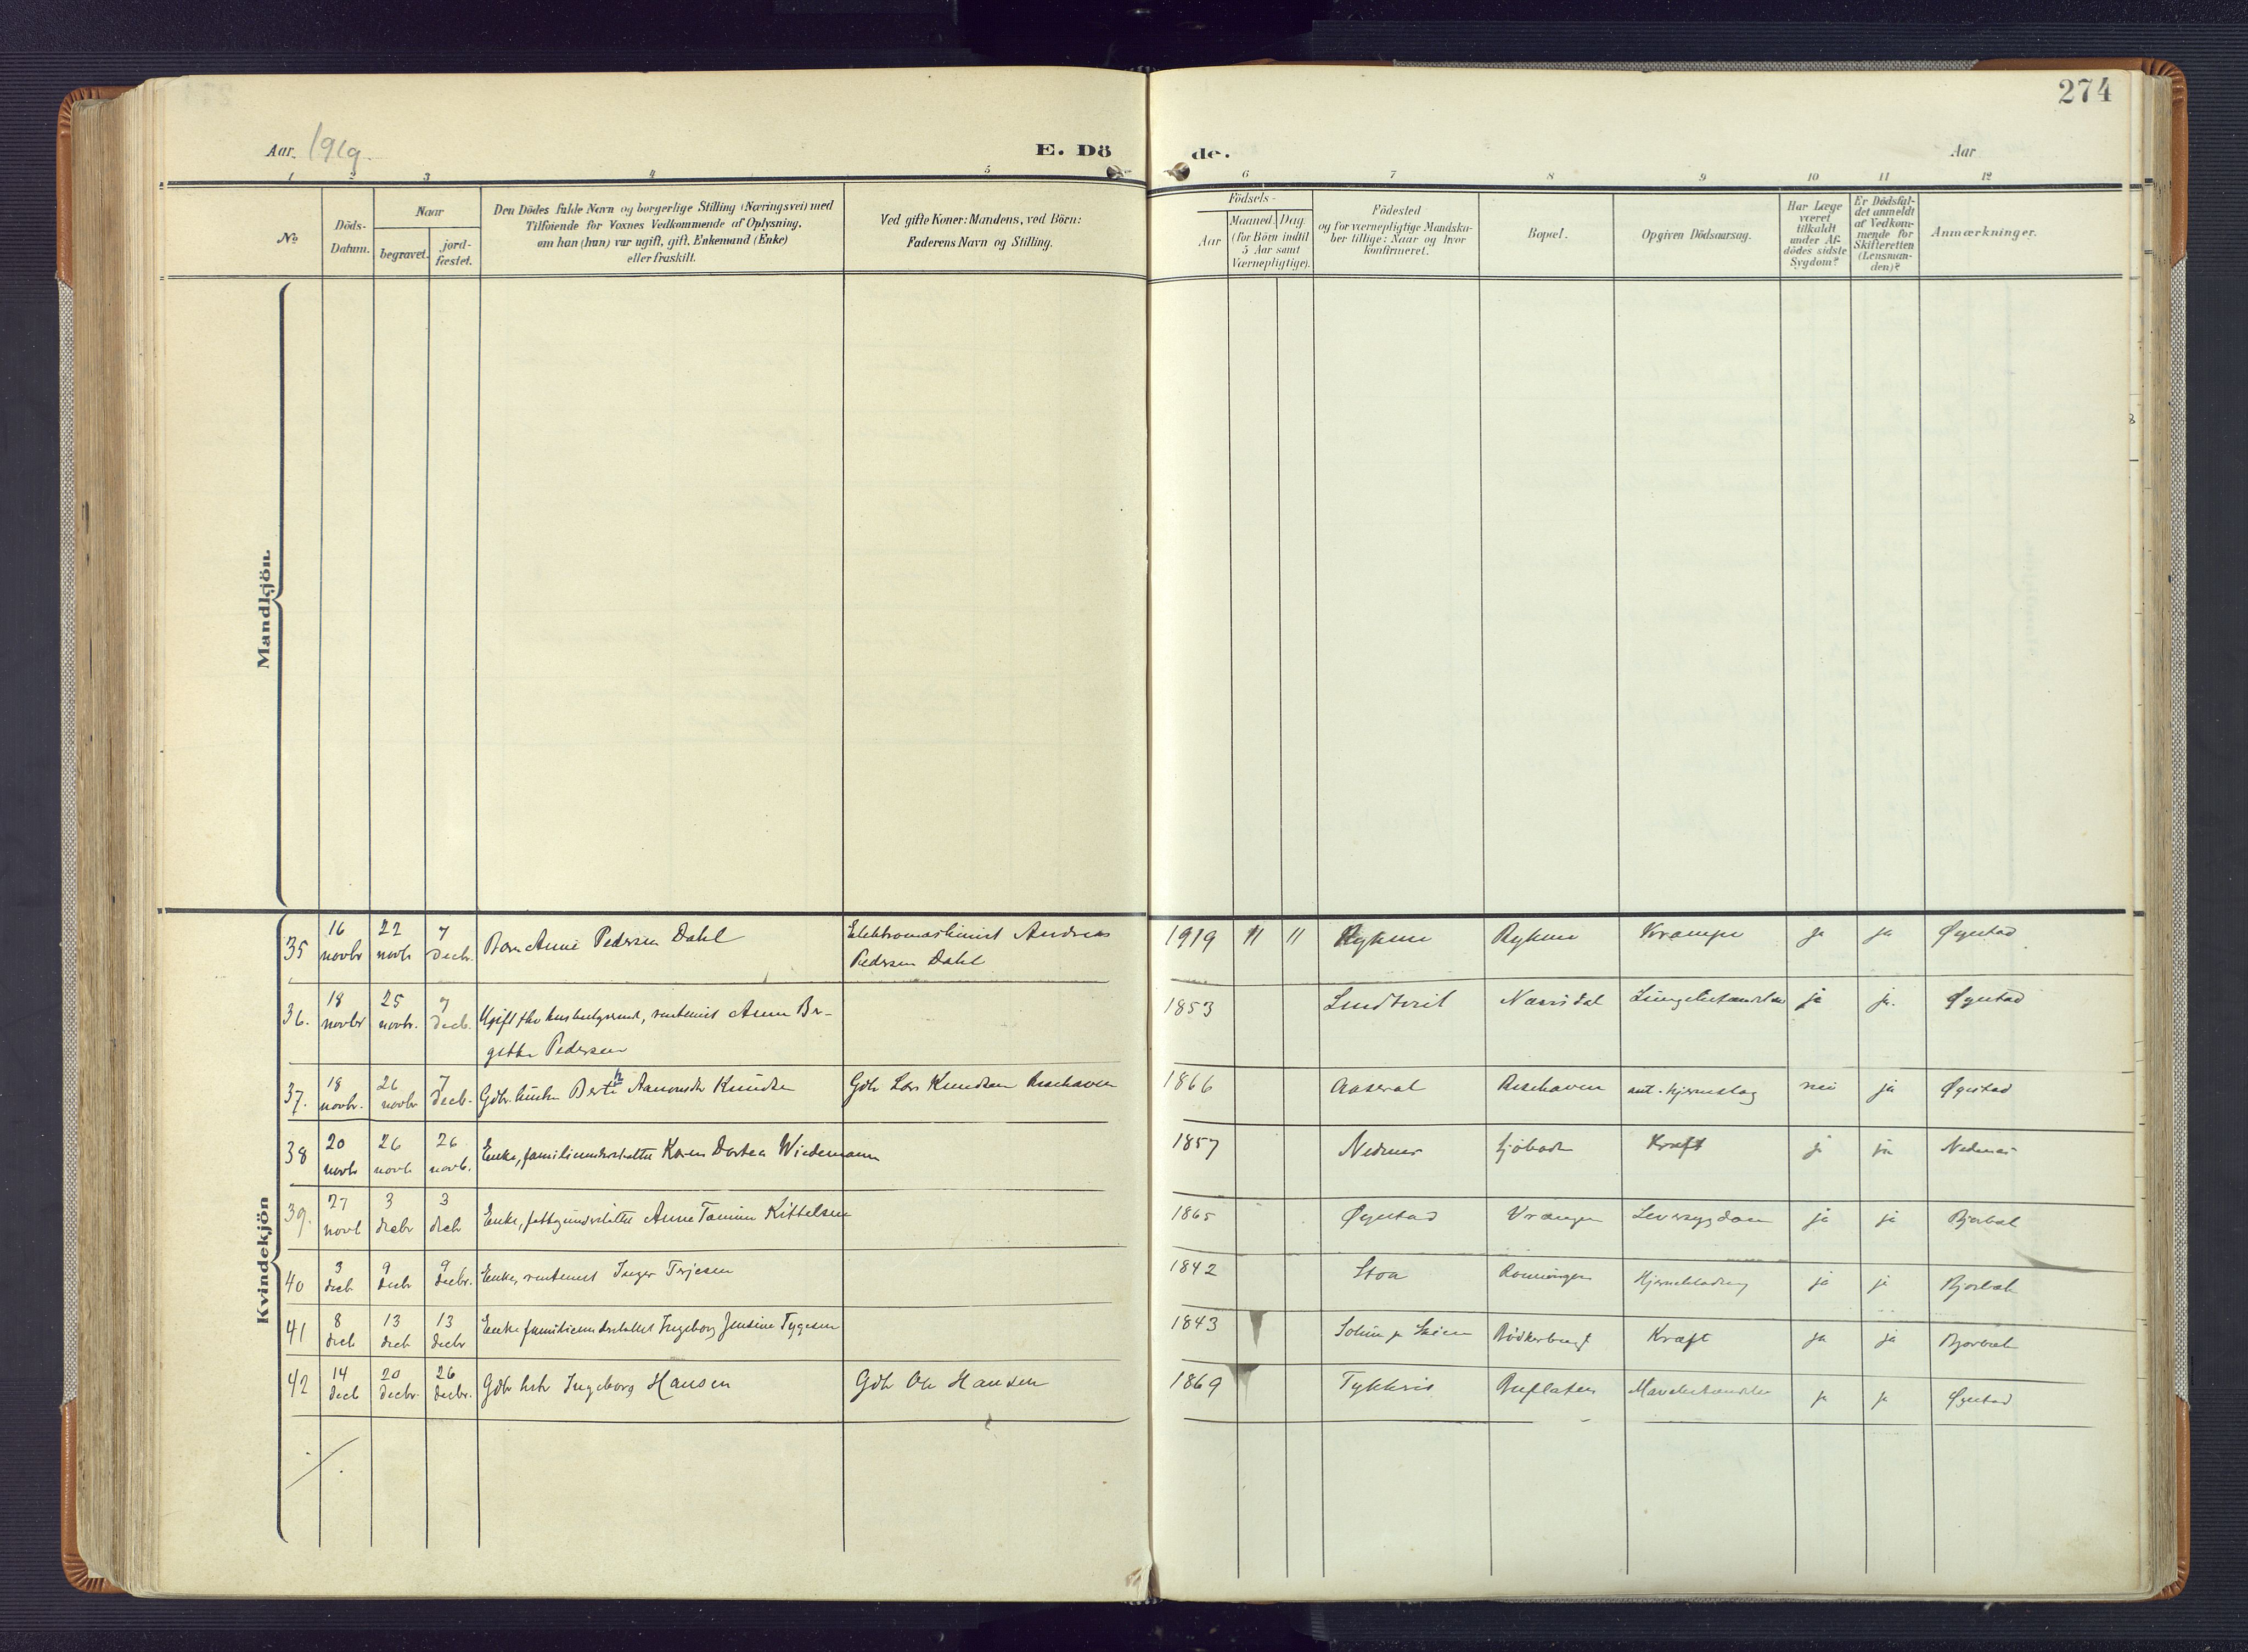 274
Aar. 1919.
E. Dö
de.
Aar
1 2 3 4 5 6 7 8 9 10 11 12
No
Döds-
Datum.
Naar
begravet.
jord-
fæstet.
Den Dödes fulde Navn og borgerlige Stilling (Næringsvei) med
Tilföiende for Voxnes Vedkommende af Oplysning,
om han (hun) var ugift, gift, Enkemand (Enke)
eller fraskilt.
Ved gifte Koner: Mandens, ved Börn:
Faderens Navn og Stilling.
Födsels-
Aar
Maaned.
Dag.
(for Börn indtil
5 Aar samt
Værnepligtige).
Födested
og for værnepligtige Mandska-
ber tillige: Naar og hvor
konfirmeret.
Bopæl.
Opgiven Dödsaarsag.
Har Læge
været
tilkaldt
under Af-
dödes sidste
Sygdom?
Er Dödsfal-
det anmeldt
af Vedkom-
mende for
Skifteretten
(Lensman-
den)?
Anmærkninger.
Mandkjön.
Kvindekjön
35 16 novbr 22 novbr 7 decbr. Barn Anne Pedersen Dahl Elektromaskinist Andreas Pedersen Dahl 1919 11 11 Rykene Rykene Krampe ja ja Øyestad
36. 18 novbr 25 novbr. 7 decb. Ugift fhv husbestyrerinde, rentenist Anne Bir-
gitte Pedersen 1853 Lundtveit Næsisdal Lungebetændelse ja ja. Øyestad
37. 18 novbr. 26 novbr 7 decb. Gdbr. hustru Berthe Aanonsdtr Knudsen Gdbr Lars Knudsen Risehaven 1866 Aaseral Risehaven ant. hjerneslag nei ja Øyestad
38 20 novb 26 novb 26 novb. Enke, familieunderstøttet Karen Dortea Wiedemann 1857 Nedenes Sjöboden Kræft ja ja Nedenes
39. 27 novb 3 decbr 3 decb Enke, fattigunderstøttet Anne Tomine Kittelsen 1865 Øyestad Vrangen Leversygdom ja ja Bjorbæk
40 3 decb 9 decbr 9 decbr. Enke, rentenist Inger Terjesen 1842 Stoa Rønningen Hjerneblødning ja ja Bjorbæk
41 8 decb 13 decb 13 decbr Enke familieunderstøttet Ingeborg Jensine Tygesen 1843 Solum pr Skien Bödkerbugt Kræft ja ja Bjorbæk
42 14 decb 20 decbr. 26 decbr. Gdbr hstr Ingeborg Hansen Gdbr Ole Hansen 1869 Tykhris Buflaten Mavebetændelse ja ja Øyestad